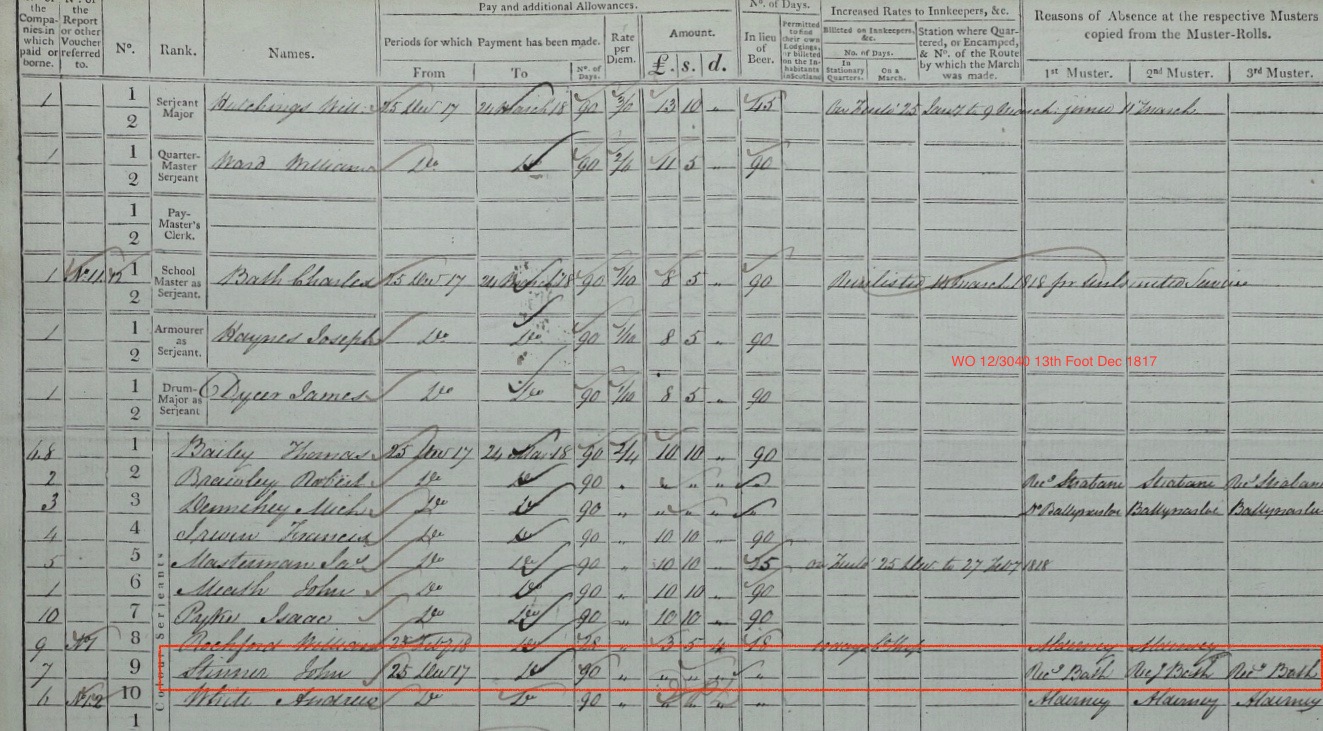 the Compa-nies in which paid or borne. N.º of the Report or other Voucher referred to. Nº. Rank. Names.
Pay and additional Allowances.
Periods for which Payment has been made.
From To Nº. of Days.
Rate per Diem.
Amount.
£. s. d.
Nº. of Days.
In lieu of Beer.
Permitted to find their own Lodgings, or billeted on the Inhabitants in Scotland
Increased Rates to Innkeepers, &c.
Billeted on Innkeepers, &c.
No. of Days.
In Stationary Quarters. On a March.
Station where Quartered, or Encamped, & Nº. of the Route by which the March was made.
Reasons of Absence at the respective Musters
copied from the Muster-Rolls.
1st Muster. 2nd Muster. 3rd Muster.
1 1 Serjeant Major Hutchings Will. 25 Decr 17 24 March 18 90 3/0 13 10 " 45 On Furlo' 25 Jany to 9 March joined 11 March
2
1 1 Quarter-Master Serjeant Ward William Do Do 90 2/6 11 5 " 90
2
1 Pay-Master's Clerk.
2
1 1 School Master as Serjeant. Bath Charles 25 Decr 17 24 March 18 90 1/10 8 5 " 90 Reinlisted March 1818 for unlimited Service
2
1 1 Armourer as Serjeant. Haynes Joseph Do Do 90 1/10 8 5 " 90
2
WO 12/3040 13th Foot Dec 1817
1 1 Drum-Major as Serjeant Dycer James Do Do 90 1/10 8 5 " 90
2
Colour Serjeants
1 Bailey Thomas 25 Decr 17 24 Mar 18 90 2/4 10 10 " 90
2 2 Robert Do Do 90 " " " " Recg Strabane Strabane Recg Strabane
3 3 Mich Do Do 90 " " " " Ballynasloe Ballynasloe Ballynasloe
4 4 Irwin Francis Do Do 90 " 10 10 " 90
5 5 Masterman Jas Do Do 90 " 10 10 " on Furlo' 25 Decr to 27 Feby 1818
1 6 Meath John Do Do 90 " 10 10 " 90
10 7 Isaac Do Do 90 " 10 10 " 90
9 Nº1 8 Rochford William 25 Feby 18 Do 28 " 3 5 4 18 Alderney Alderney
7 9 Stinner John 25 Decr 17 Do 90 " " " " " Recg Bath Recg Bath Recg Bath
6 10 White Andrew Do Do 90 " " " " " Alderney Alderney Alderney
1